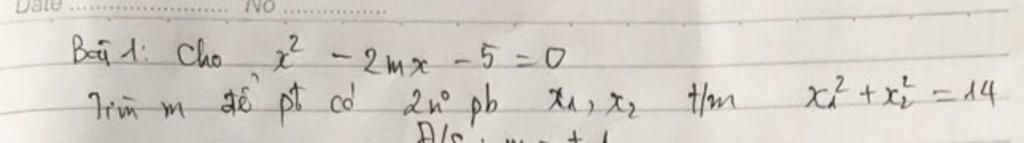 Date ........................ No ................
Bài 1: Cho x² - 2mx - 5 = 0
Tìm m để pt có 2n° pb x₁, x₂ t/m x₁² + x₂² = 14